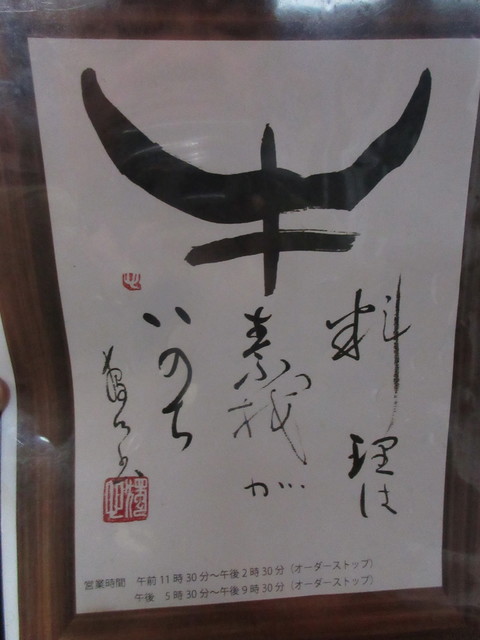 牛
料理は
素材が
いのち
営業時間　午前11時30分～午後2時30分（オーダーストップ）
午後　5時30分～午後9時30分（オーダーストップ）